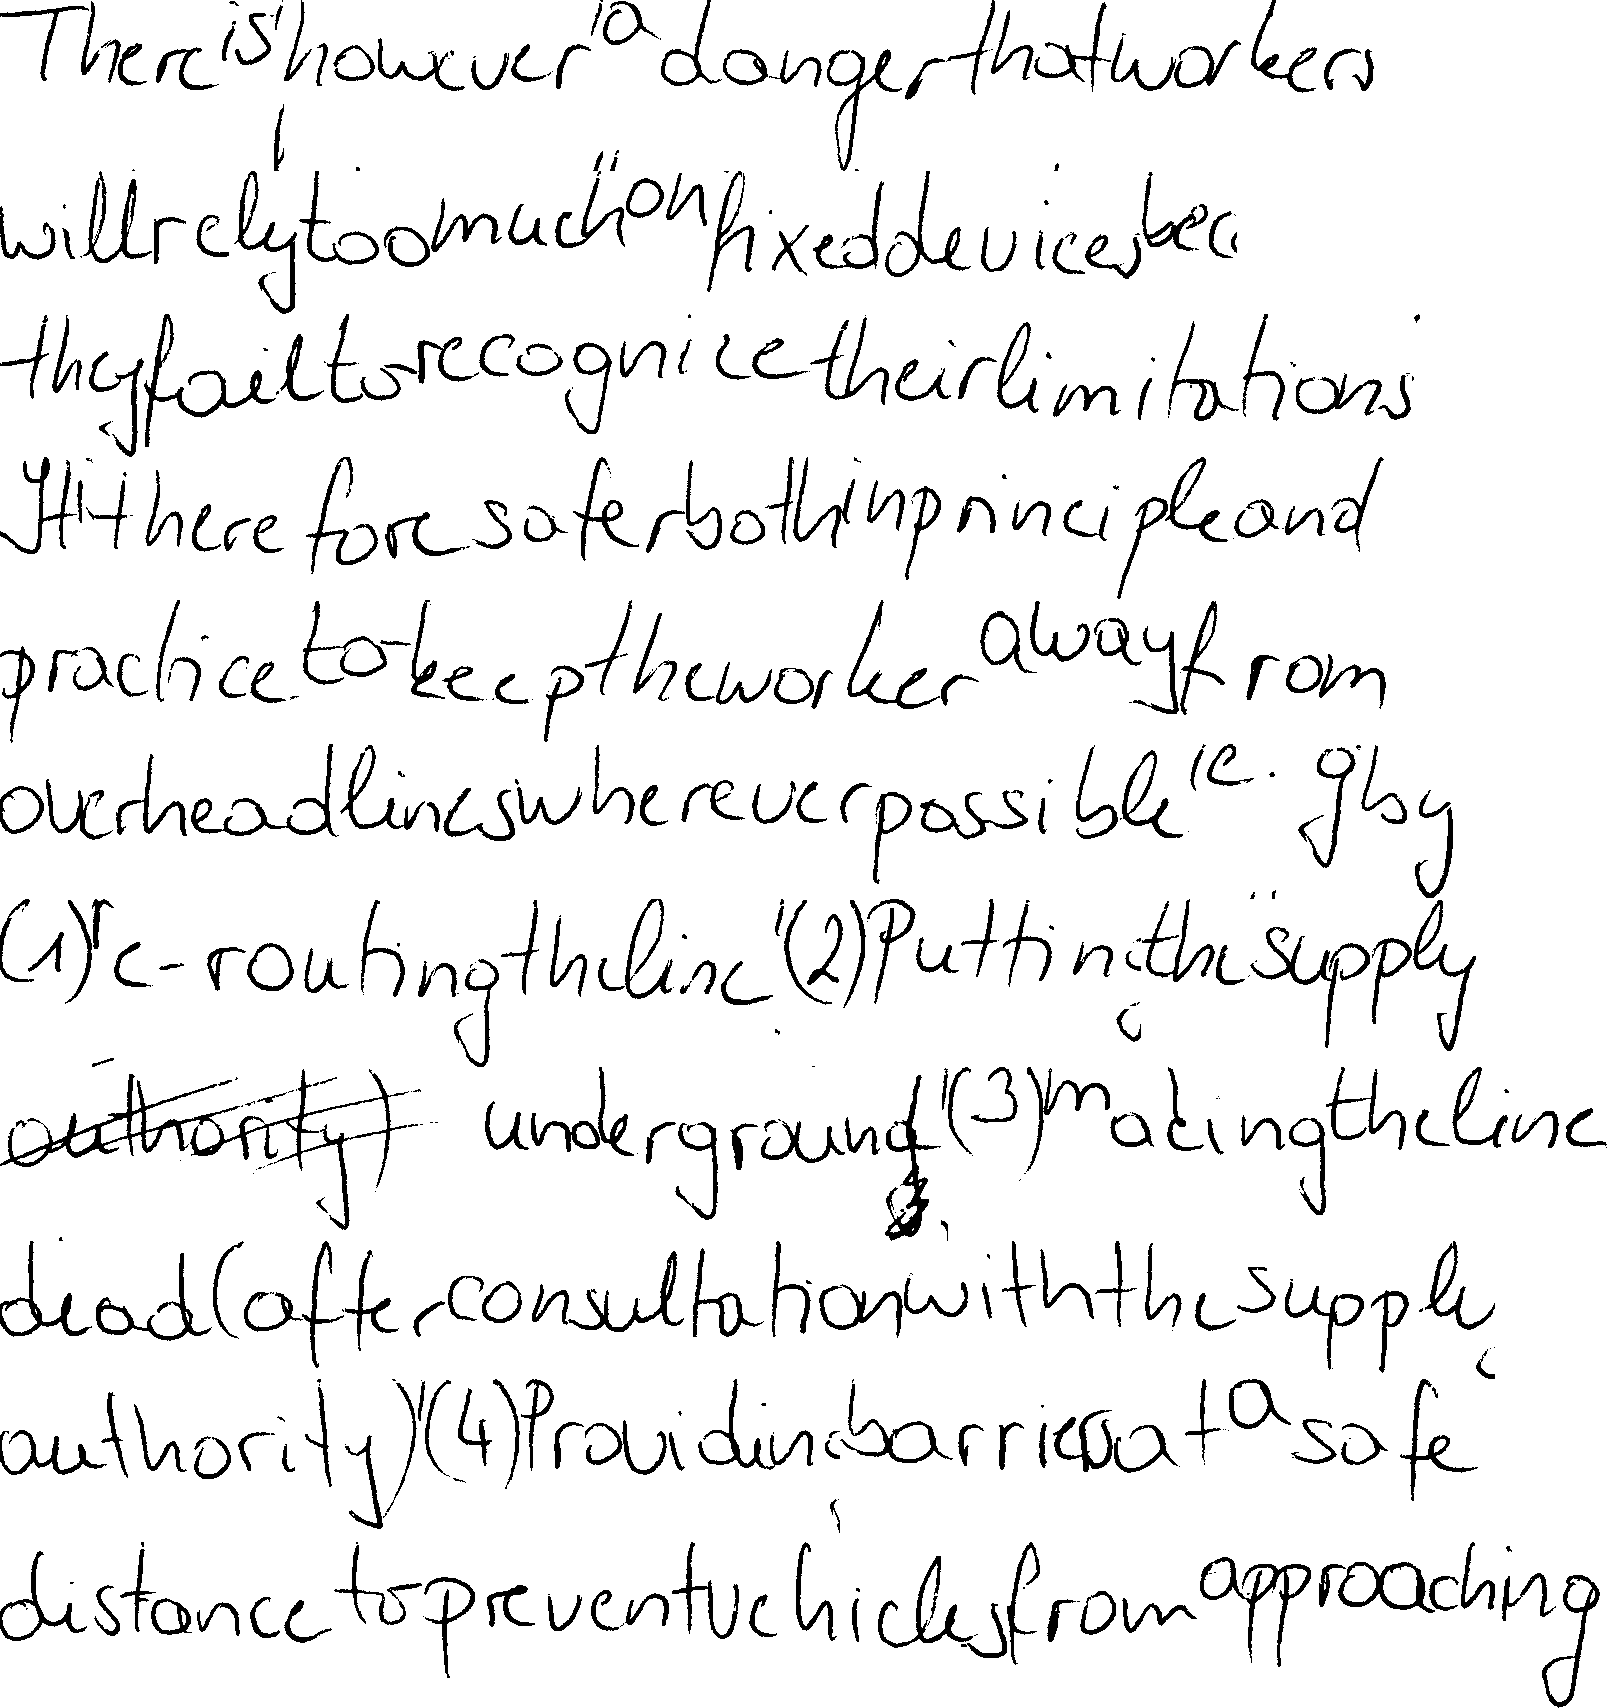 There is, however, a danger that workers
will rely too much on fixed devices bec
they fail to recognice their limitations
It is therefore safer both in principle and
practice to keep the worker away from
overhead lines wherever possible, e.g by
(1) re-routing the line, (2) Putting the supply
underground, (3) making the line
dead (after consultation with the supply
authority), (4) Providing barriers at a safe
distance to prevent vehicles from approaching